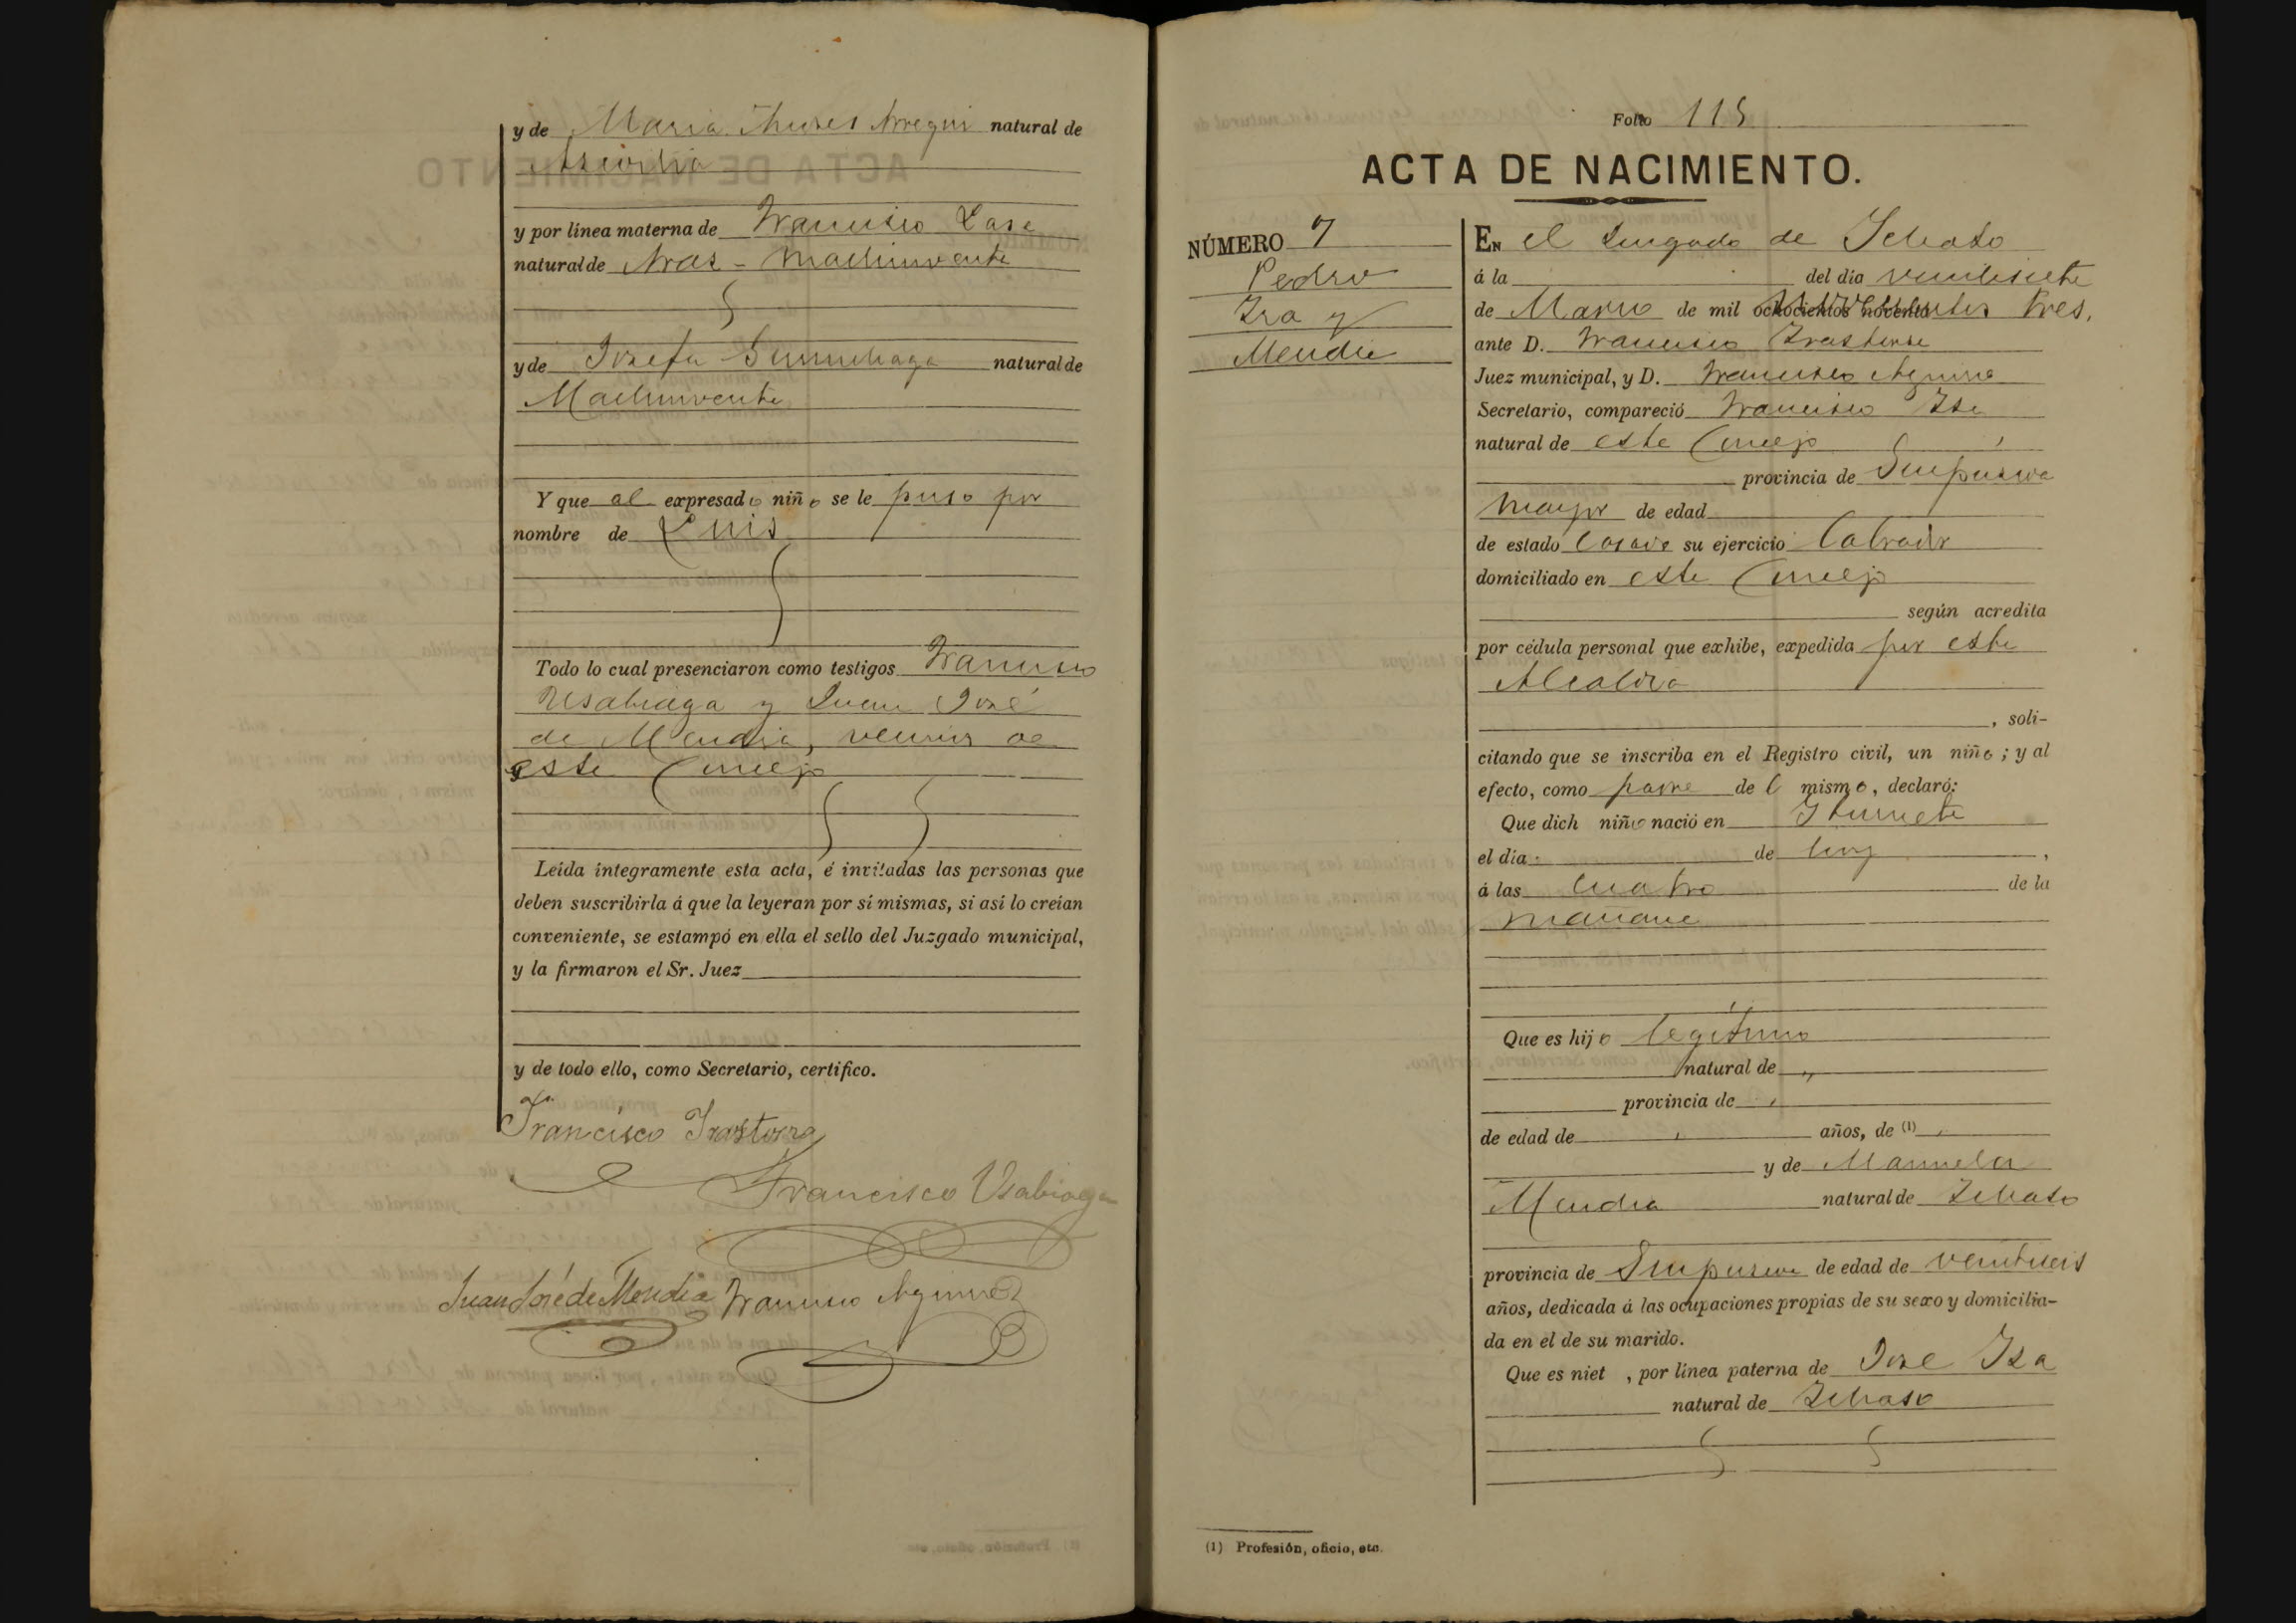 y de Maria Andres Arregui natural de
Ascoitia
y por línea materna de Francisco Lasa
natural de Araz - Machinventa
y de Josefa Gurruchaga natural de
Machinventa
Y que al expresado niño se le puso por
nombre de Luis
Todo lo cual presenciaron como testigos Francisco
Usabiaga y Juan José
de Mendia, vecinos de
este Concejo
Leída íntegramente esta acta, é invitadas las personas que
deben suscribirla á que la leyeran por sí mismas, si así lo creían
conveniente, se estampó en ella el sello del Juzgado municipal,
y la firmaron el Sr. Juez
y de todo ello, como Secretario, certifico.
Francisco Irastorza
Francisco Usabiaga
Juan José de Mendia Francisco Aguirre
Folio 115
ACTA DE NACIMIENTO.
NÚMERO 7
Pedro
Isa y
Mendia
EN el Juzgado de Ichaso
á la del día veintisiete
de Marzo de mil ochocientos noventa novecientos tres,
ante D. Francisco Irastorza
Juez municipal, y D. Francisco Aguirre
Secretario, compareció Francisco Isa
natural de este Concejo
provincia de Guipuzcoa
mayor de edad
de estado casado su ejercicio labrador
domiciliado en este Concejo
según acredita
por cédula personal que exhibe, expedida por esta
Alcaldia
, soli-
citando que se inscriba en el Registro civil, un niño; y al
efecto, como padre del mismo, declaró:
Que dich niño nació en
el día de hoy,
á las cuatro de la
mañana
Que es hijo legítimo
natural de „
provincia de „
de edad de „ años, de (1) „
y de Manuela
Mendia natural de Ichaso
provincia de Guipuzcoa de edad de veintiseis
años, dedicada á las ocupaciones propias de su sexo y domicilia-
da en el de su marido.
Que es niet , por línea paterna de José Isa
natural de Ichaso
(1) Profesión, oficio, etc.